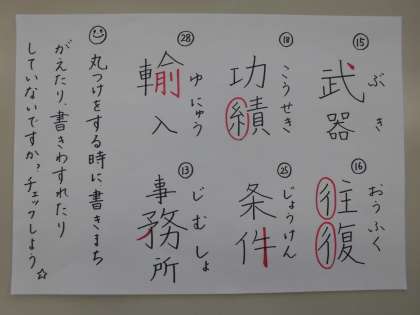 ⑮
武器
ぶき
⑯
往復
おうふく
⑱
功績
こうせき
㉕
条件
じょうけん
㉘
輸入
ゆにゅう
⑬
事務所
じむしょ
丸つけをする時に書きまち
がえたり、書きわすれたり
していないですか?チェックしよう☆